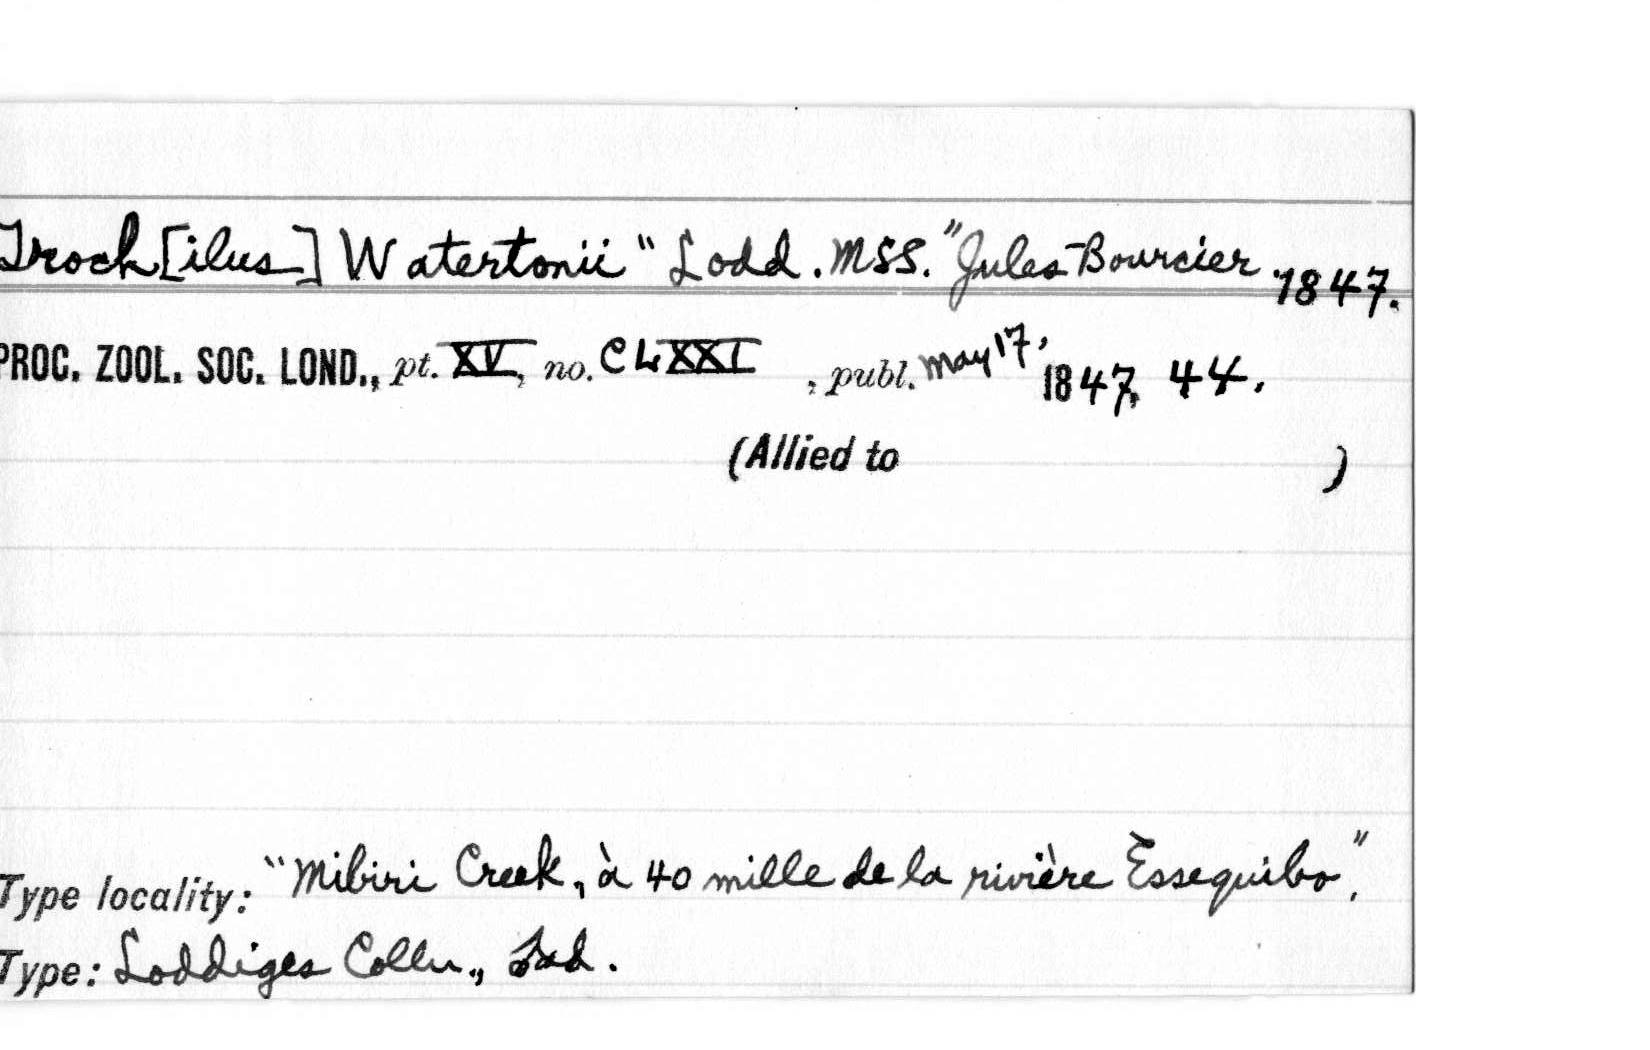 Troch[ilus] Watertonii "Lodd. MSS." Jules Bourcier 1847.
PROC. ZOOL. SOC. LOND., pt. XV, no. CLXXI, publ. May 17, 1847, 44.
(Allied to )
Type locality: "Mibiri Creek, à 40 mille de la rivière Essequibo",
Type: Loddiges Colln.,